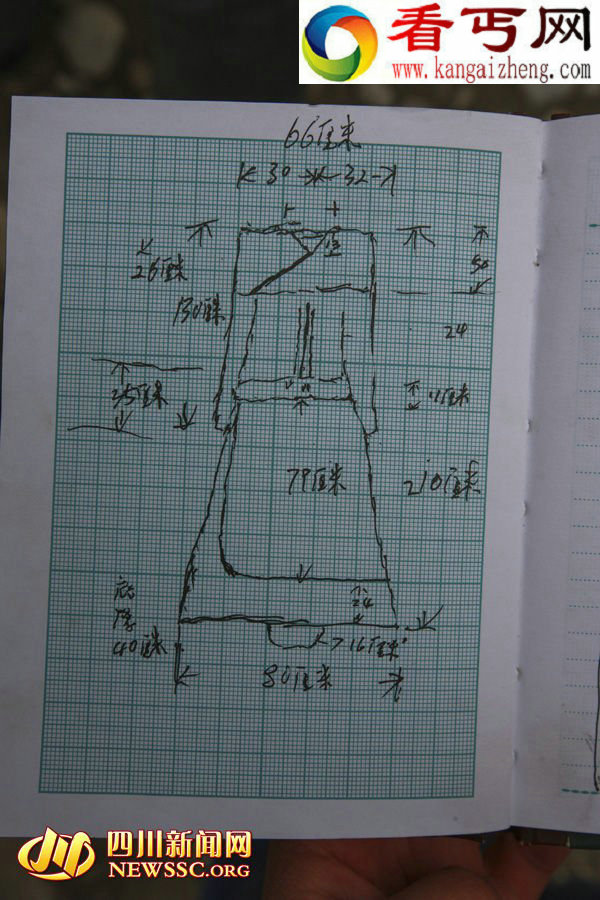 看丐网
www.kangaizheng.com
66厘米
30
32
26厘米
130厘米
50
24
25厘米
11厘米
79厘米
210厘米
24
底座
40厘米
16厘米
80厘米
四川新闻网
NEWSSC.ORG